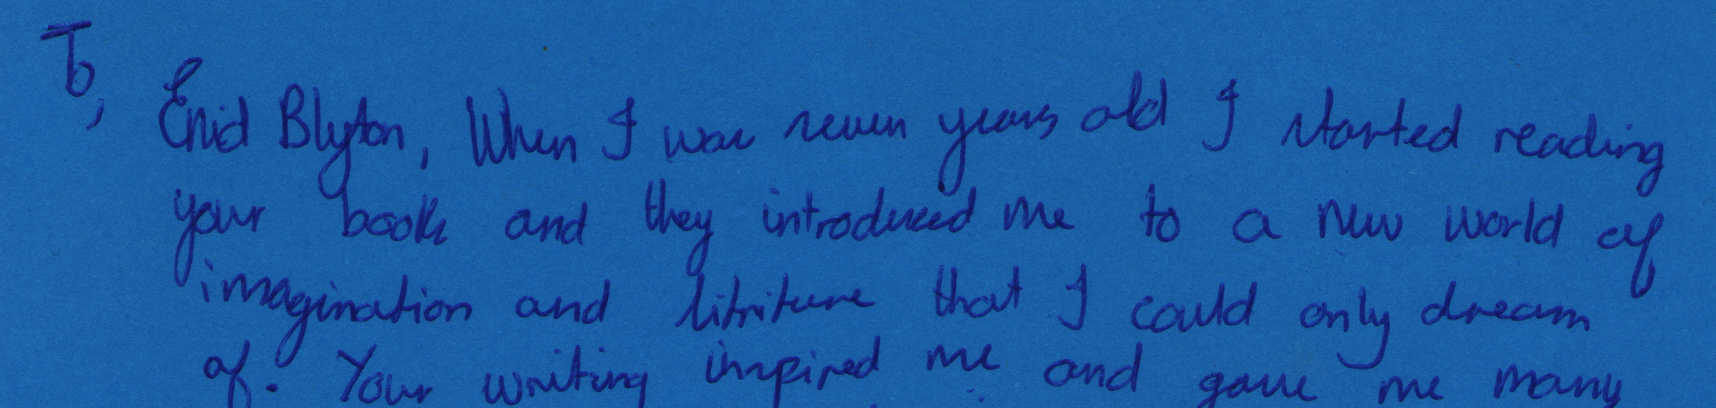 To,
Enid Blyton, When I was seven years old I started reading
your books and they introduced me to a new world of
imagination and litriture that I could only dream
of. Your writing inspired me and gave me many